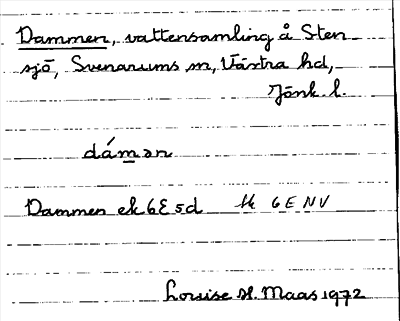 Dammen, vattensamling å Sten
sjö, Svenarums sn, Västra hd,
Jönk. l.
dámən
Dammen ek 6E5d tk 6E NV
Louise H. Maas 1972